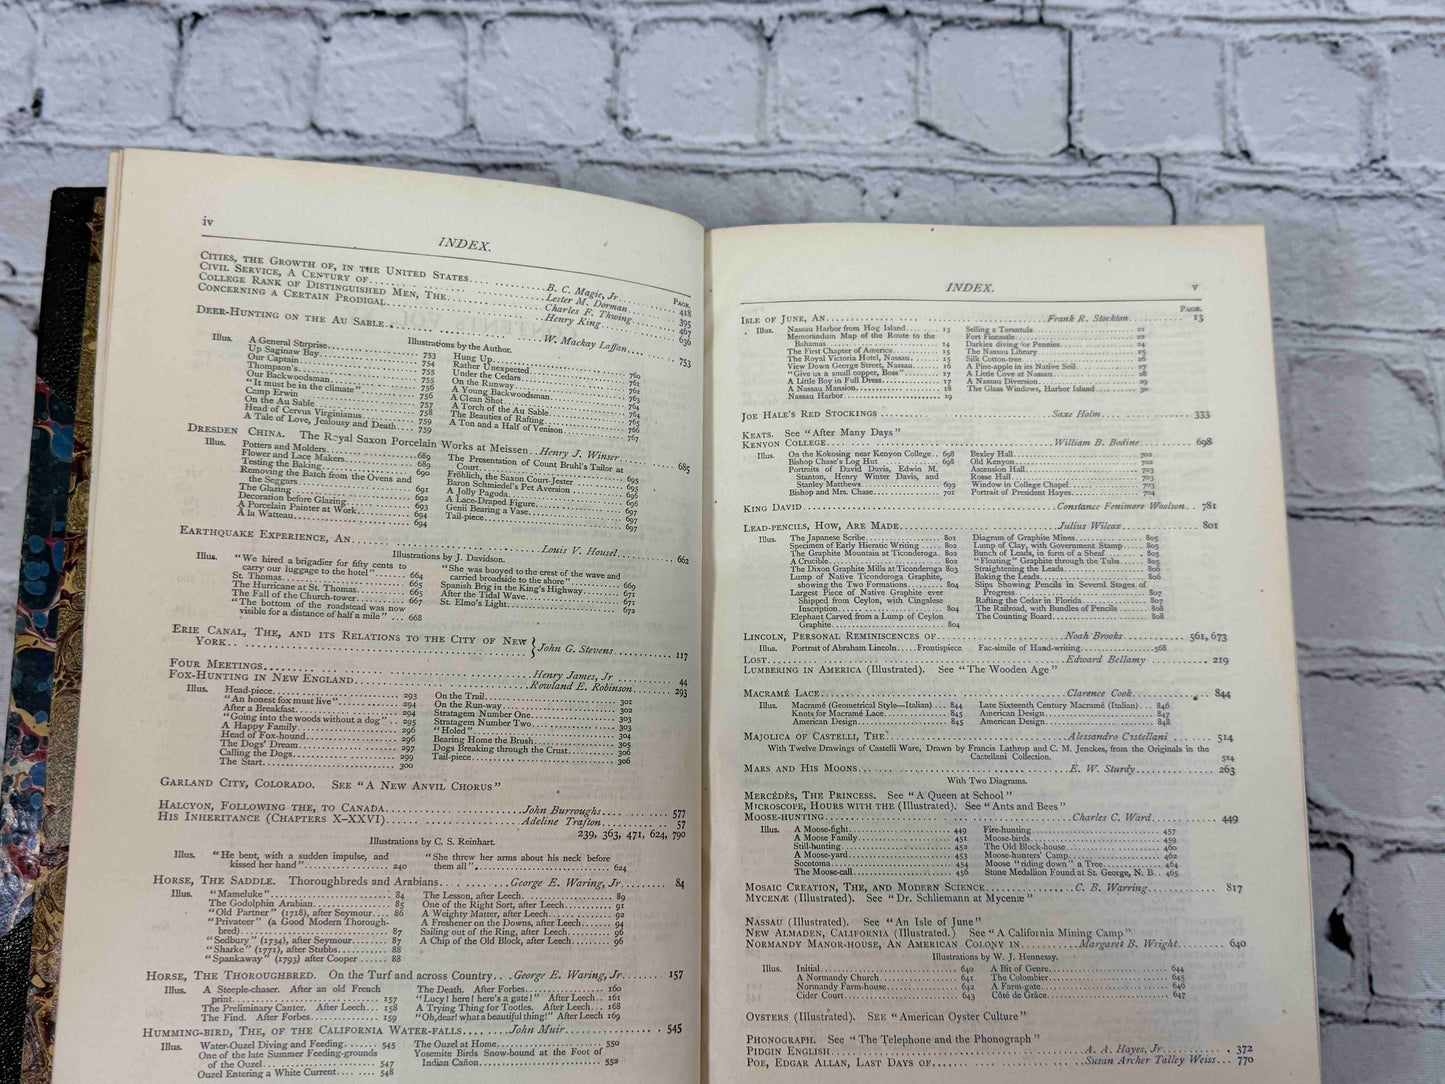 iv
INDEX.
PAGE.
CITIES, THE GROWTH OF, IN THE UNITED STATES. B. C. Magie, Jr. 418
CIVIL SERVICE, A CENTURY OF. Lester M. Dorman 395
COLLEGE RANK OF DISTINGUISHED MEN, THE. Charles F. Thwing. 467
CONCERNING A CERTAIN PRODIGAL. Henry King 636
DEER-HUNTING ON THE AU SABLE. W. Mackay Laffan. 753
Illustrations by the Author.
Illus. A General Surprise. 753
Up Saginaw Bay 754
Our Captain 755
Thompson's 755
Our Backwoodsman 756
"It must be in the climate" 756
Camp Erwin 757
On the Au Sable 758
Head of Cervus Virginianus 759
A Tale of Love, Jealousy and Death 759
Hung Up. 760
Rather Unexpected 761
Under the Cedars 762
On the Runway 763
A Young Backwoodsman 763
A Clean Shot 764
A Torch of the Au Sable 764
The Beauties of Rafting 765
A Ton and a Half of Venison 767
DRESDEN CHINA. The Royal Saxon Porcelain Works at Meissen. Henry J. Winser 685
Illus. Potters and Molders 689
Flower and Lace Makers 689
Testing the Baking 690
Removing the Batch from the Ovens and
the Seggars 691
The Glazing 692
Decoration before Glazing 693
A Porcelain Painter at Work 694
À la Watteau 694
The Presentation of Count Bruhl's Tailor at
Court 695
Fröhlich, the Saxon Court-Jester 695
Baron Schmiedel's Pet Aversion 696
A Jolly Pagoda 696
A Lace-Draped Figure 697
Genii Bearing a Vase 697
Tail-piece 697
EARTHQUAKE EXPERIENCE, AN. Louis V. Housel 662
Illustrations by J. Davidson.
Illus. "We hired a brigadier for fifty cents to
carry our luggage to the hotel" 664
St. Thomas 665
The Hurricane at St. Thomas 665
The Fall of the Church-tower 667
"The bottom of the roadstead was now
visible for a distance of half a mile" 668
"She was buoyed to the crest of the wave and
carried broadside to the shore" 669
Spanish Brig in the King's Highway 671
After the Tidal Wave 671
St. Elmo's Light 672
ERIE CANAL, THE, AND ITS RELATIONS TO THE CITY OF NEW
YORK. John G. Stevens 117
FOUR MEETINGS. Henry James, Jr 44
FOX-HUNTING IN NEW ENGLAND. Rowland E. Robinson 293
Illus. Head-piece 293
"An honest fox must live" 294
After a Breakfast 294
"Going into the woods without a dog" 295
A Happy Family 296
Head of Fox-hound 296
The Dogs' Dream 297
Calling the Dogs 299
The Start 300
On the Trail 301
On the Run-way 302
Stratagem Number One 303
Stratagem Number Two 303
"Holed" 304
Bearing Home the Brush 305
Dogs Breaking through the Crust 306
Tail-piece 306
GARLAND CITY, COLORADO. SEE "A NEW ANVIL CHORUS"
HALCYON, FOLLOWING THE, TO CANADA John Burroughs 577
HIS INHERITANCE (CHAPTERS X-XXVI) Adeline Trafton 57
239, 363, 471, 624, 790
Illustrations by C. S. Reinhart.
Illus. "He bent, with a sudden impulse, and
kissed her hand" 240
"She threw her arms about his neck before
them all" 624
HORSE, THE SADDLE. Thoroughbreds and Arabians. George E. Waring, Jr 84
Illus. "Mameluke" 84
The Godolphin Arabian 85
"Old Partner" (1718), after Seymour 86
"Privateer" (a Good Modern Thorough-
bred) 87
"Sedbury" (1734), after Seymour 87
"Sharke" (1771), after Stubbs 88
"Spankaway" (1793) after Cooper 88
The Lesson, after Leech 89
One of the Right Sort, after Leech 91
A Weighty Matter, after Leech 92
A Freshener on the Downs, after Leech 94
Sailing out of the Ring, after Leech 96
A Chip of the Old Block, after Leech 96
HORSE, THE THOROUGHBRED. On the Turf and across Country. George E. Waring, Jr 157
Illus. A Steeple-chaser. After an old French
print 157
The Preliminary Canter. After Leech 158
The Find. After Forbes 159
The Death. After Forbes 160
"Lucy! here! here's a gate!" After Leech 161
A Trying Thing for Tootles. After Leech 168
"Oh, dear! what a beautiful thing!" After Leech 169
HUMMING-BIRD, THE, OF THE CALIFORNIA WATER-FALLS. John Muir 545
Illus. Water-Ouzel Diving and Feeding 545
One of the late Summer Feeding-grounds
of the Ouzel 547
Ouzel Entering a White Current 548
The Ouzel at Home 550
Yosemite Birds Snow-bound at the Foot of
Indian Cañon 552
INDEX.
v
PAGE.
ISLE OF JUNE, AN Frank R. Stockton 13
Illus. Nassau Harbor from Hog Island 13
Memorandum Map of the Route to the
Bahamas 14
The First Chapter of America 15
The Royal Victoria Hotel, Nassau 15
View Down George Street, Nassau 16
"Give us a small copper, Boss" 17
A Little Boy in Full Dress 17
A Nassau Mansion 18
Nassau Harbor 19
Selling a Tarantula 21
Fort Fincastle 22
Darkies diving for Pennies 24
The Nassau Library 25
Silk Cotton-tree 26
A Pine-apple in its Native Soil 27
A Little Cove at Nassau 28
A Nassau Diversion 29
The Glass Windows, Harbor Island 30
JOE HALE'S RED STOCKINGS Saxe Holm 333
KEATS. See "After Many Days"
KENYON COLLEGE William B. Bodine 698
Illus. On the Kokosing near Kenyon College 698
Bishop Chase's Log Hut 698
Portraits of David Davis, Edwin M.
Stanton, Henry Winter Davis, and
Stanley Matthews 699
Bishop and Mrs. Chase 701
Bexley Hall 702
Old Kenyon 702
Ascension Hall 703
Rosse Hall 703
Window in College Chapel 703
Portrait of President Hayes 704
KING DAVID Constance Fenimore Woolson. 781
LEAD-PENCILS, HOW, ARE MADE Julius Wilcox 801
Illus. The Japanese Scribe 801
Specimen of Early Hieratic Writing 802
The Graphite Mountain at Ticonderoga 802
A Crucible 802
The Dixon Graphite Mills at Ticonderoga 803
Lump of Native Ticonderoga Graphite,
showing the Two Formations 804
Largest Piece of Native Graphite ever
Shipped from Ceylon, with Cingalese
Inscription 804
Elephant Carved from a Lump of Ceylon
Graphite 804
Diagram of Graphite Mines 805
Lump of Clay, with Government Stamp 805
Bunch of Leads, in form of a Sheaf 805
"Floating" Graphite through the Tubs 805
Straightening the Leads 806
Baking the Leads 806
Slips Showing Pencils in Several Stages of
Progress 807
Rafting the Cedar in Florida 807
The Railroad, with Bundles of Pencils 808
The Counting Board 808
LINCOLN, PERSONAL REMINISCENCES OF Noah Brooks 561, 673
Illus. Portrait of Abraham Lincoln Frontispiece Fac-simile of Hand-writing 568
LOST Edward Bellamy 219
LUMBERING IN AMERICA (Illustrated). See "The Wooden Age"
MACRAMÉ LACE Clarence Cook 844
Illus. Macramé (Geometrical Style—Italian) 844
Knots for Macramé Lace 845
American Design 845
Late Sixteenth Century Macramé (Italian) 846
American Design 847
American Design 848
MAJOLICA OF CASTELLI, THE Alessandro Castellani 514
With Twelve Drawings of Castelli Ware, Drawn by Francis Lathrop and C. M. Jenckes, from the Originals in the
Castellani Collection. 514
MARS AND HIS MOONS E. W. Sturdy 263
With Two Diagrams.
MERCÉDÈS, THE PRINCESS. See "A Queen at School"
MICROSCOPE, HOURS WITH THE (Illustrated). See "Ants and Bees"
MOOSE-HUNTING Charles C. Ward 449
Illus. A Moose-fight 449
A Moose Family 451
Still-hunting 452
A Moose-yard 453
Socotoma 454
The Moose-call 456
Fire-hunting 457
Moose-birds 459
The Old Block-house 460
Moose-hunters' Camp 462
Moose "riding down" a Tree 464
Stone Medallion Found at St. George, N. B. 465
MOSAIC CREATION, THE, AND MODERN SCIENCE C. B. Warring 817
MYCENÆ (Illustrated). See "Dr. Schliemann at Mycenæ"
NASSAU (Illustrated). See "An Isle of June"
NEW ALMADEN, CALIFORNIA (Illustrated.) See "A California Mining Camp"
NORMANDY MANOR-HOUSE, AN AMERICAN COLONY IN Margaret B. Wright 640
Illustrations by W. J. Hennessy.
Illus. Initial 640
A Normandy Church 641
Normandy Farm-house 642
Cider Court 643
A Bit of Genre 644
The Colombier 645
A Farm-gate 646
Côté de Grâce 647
OYSTERS (Illustrated). SEE "American Oyster Culture"
PHONOGRAPH. See "The Telephone and the Phonograph"
PIDGIN ENGLISH A. A. Hayes, Jr 372
POE, EDGAR ALLAN, LAST DAYS OF Susan Archer Talley Weiss 770